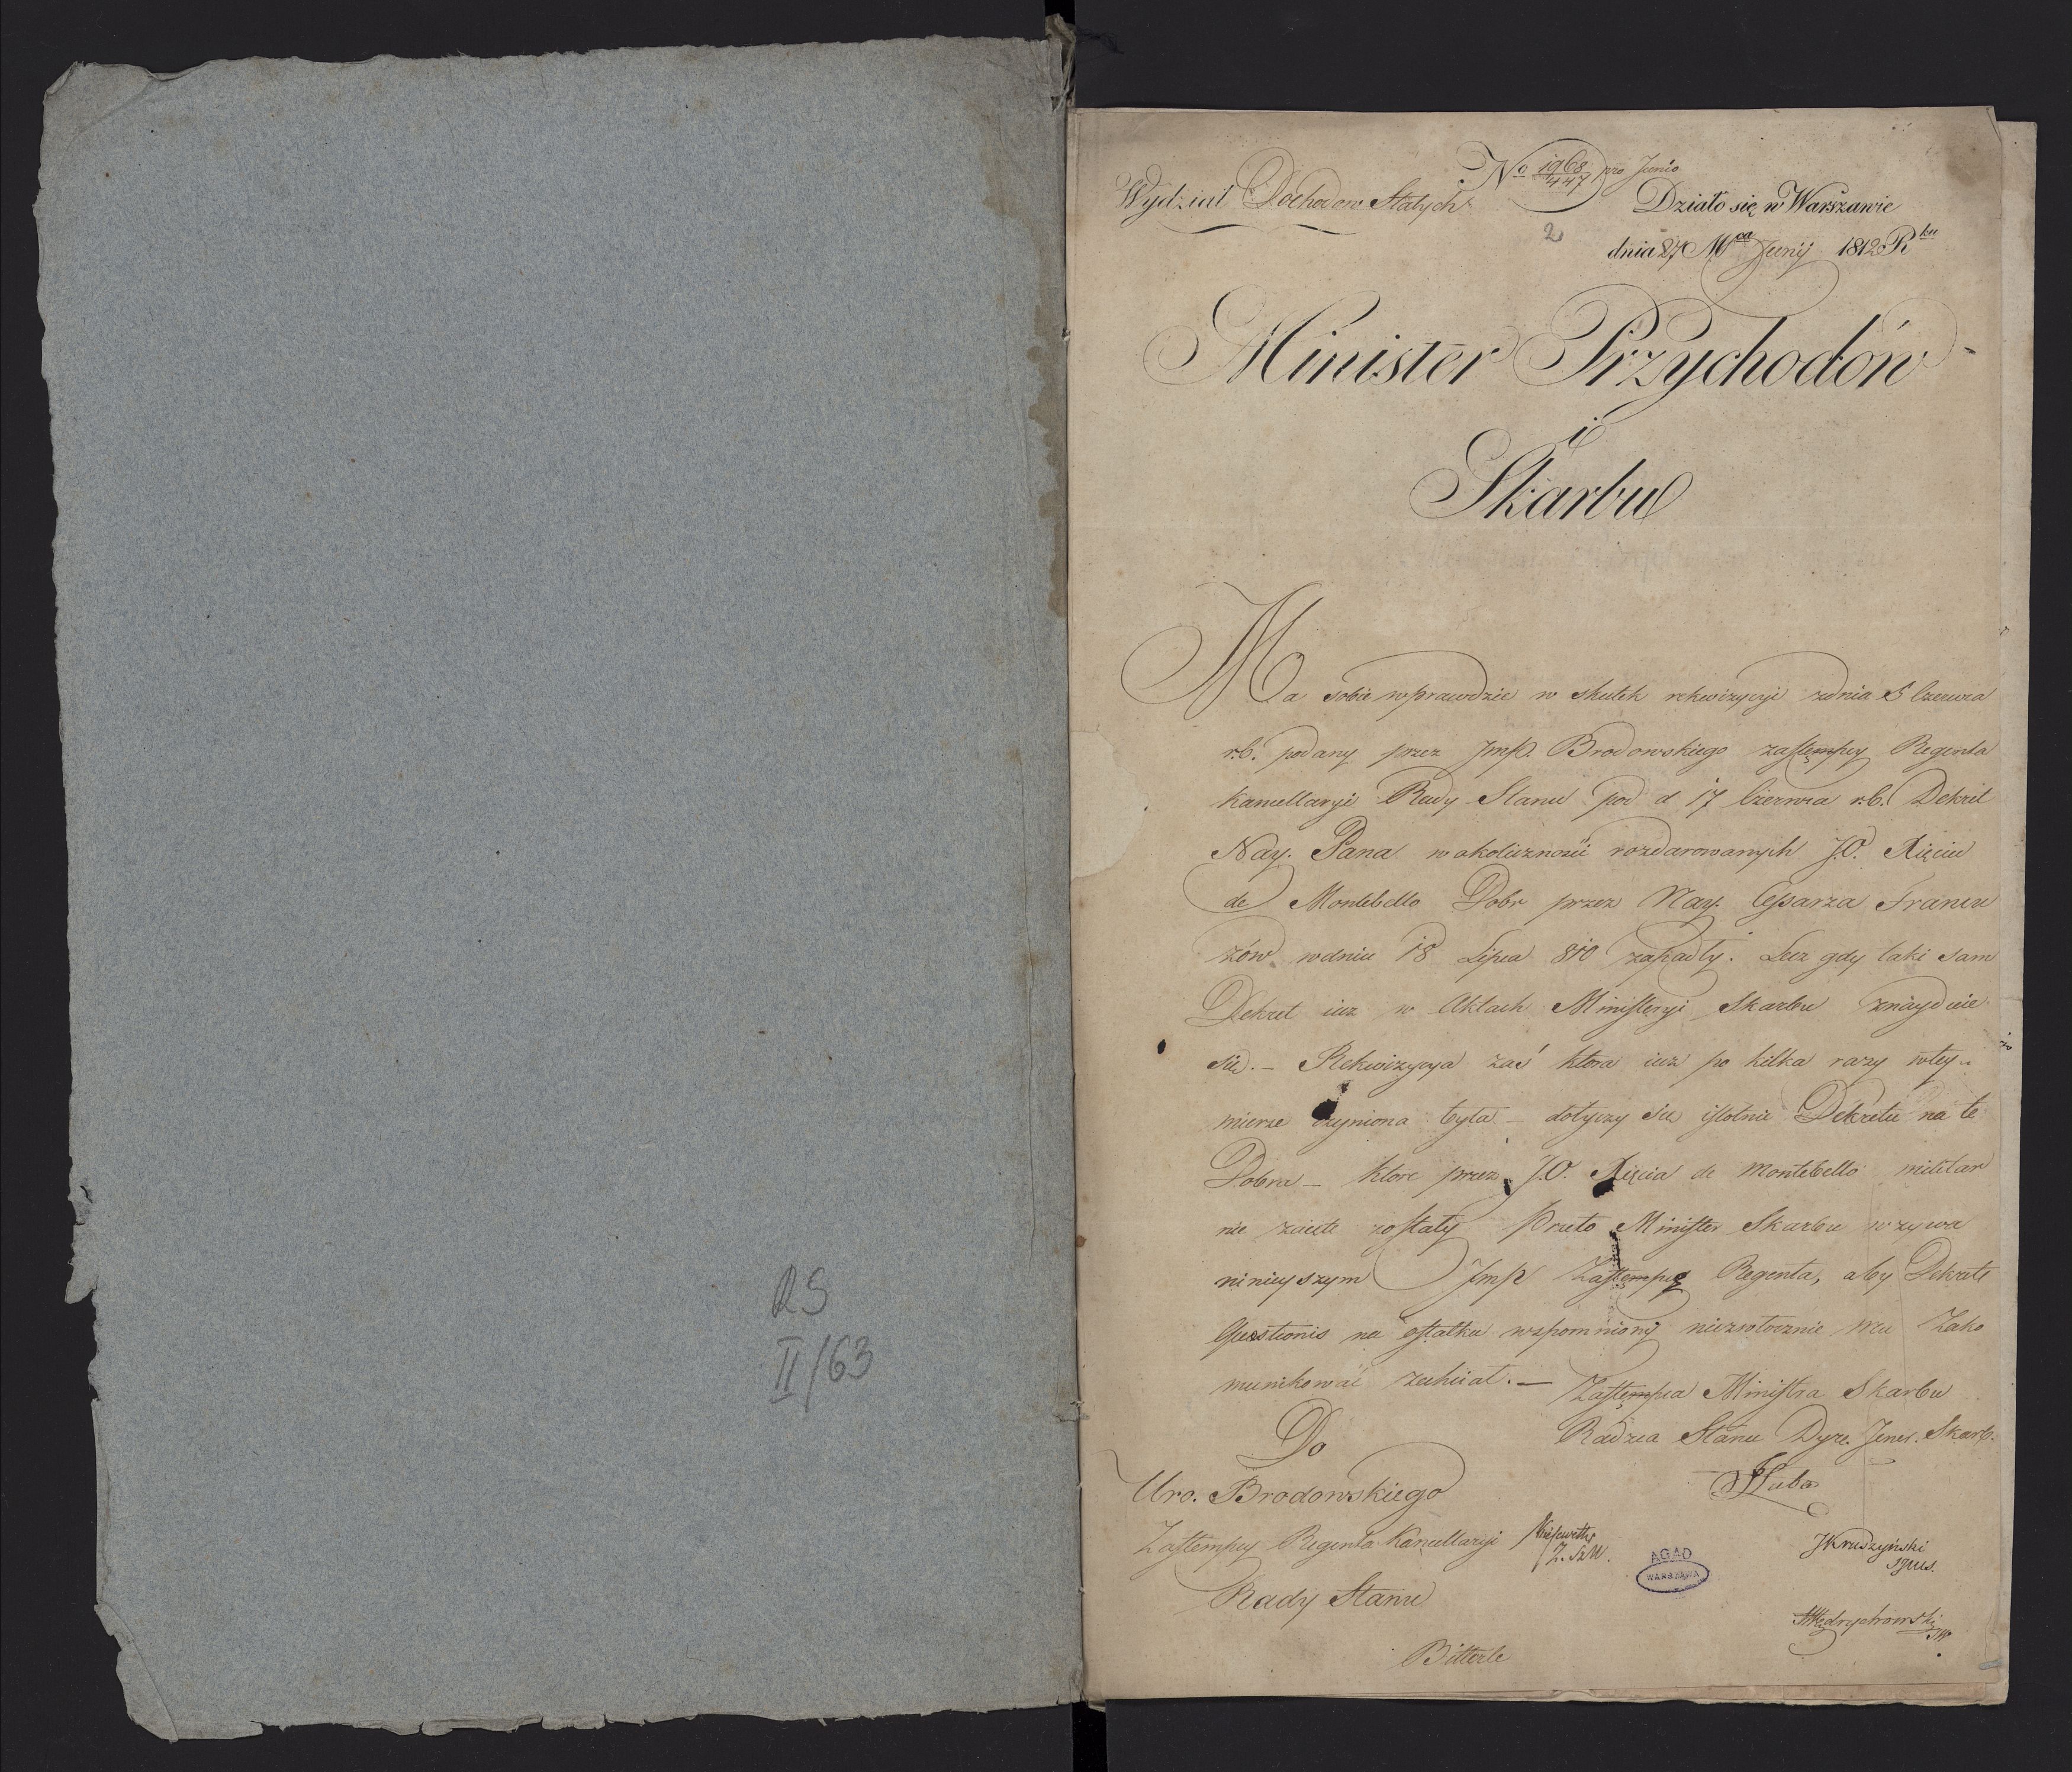 RS
II/63
Wydział Dochodow Stałych
No 1968/447 pro Junio
2
Działo się w Warszawie
dnia 27 Mca Junij 1812 Rku
Minister Przychodów
i
Skarbu
Ma sobie wprawdzie w skutek rekwizycyi zdnia 5 Czerwca
r.b. podany przez Jmp. Brodowskiego zastempcy Regenta
kancellaryi Rady Stanu pod d 17 Czerwca r.b. Dekret
Nay. Pana wokoliczności rozdarowanych J.O. Xięciu
de Montebello Dobr przez Nay. Cesarza Francu
zów wdniu 18 Lipca 810 zapadły. Lecz gdy taki sam
Dekret iuz w Aktach Ministeryi Skarbu znayduie
sie. - Rekwizycya zaś ktora iuz po kilka razy wtey
mierze czyniona była - dotyczy sie istotnie Dekretu na te
Dobra - ktore przez J.O. Xięcia de Montebello militar
nie zaięte zostały Przeto Minister Skarbu wzywa
ninieyszym Jmp Zastempcę Regenta, aby Dekret
Questionis na ostatku wspomniony niezwłocznie mu Zako
munikować zechciał. -
Zastempca Ministra Skarbu
Radzca Stanu Dyre. Jener. Skarb.
Do
Uro. Brodowskiego
Zastempcy Regenta Kancellaryi
Rady Stanu
JKruszyński
AGAD
WARSZAWA
Bitterle